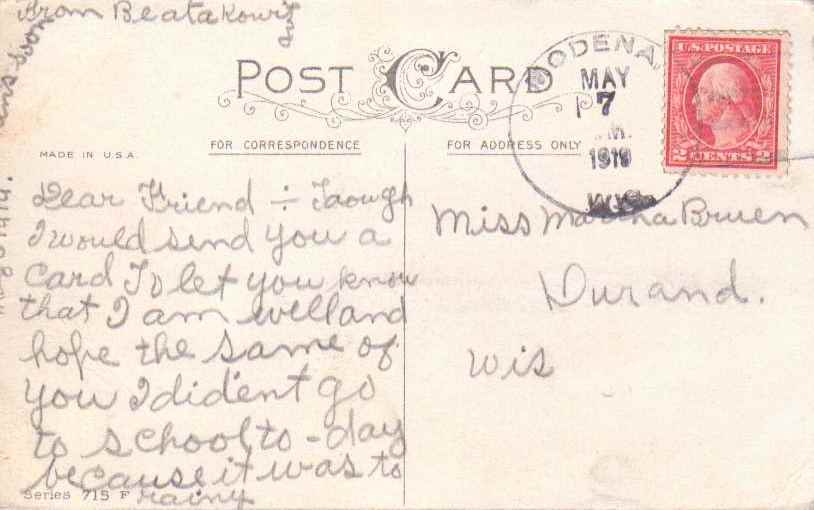 From Beatakowitz
soon
POST CARD
MODENA,
MAY
7
M.
1919
WIS.
U.S. POSTAGE
2 CENTS 2
MADE IN U.S.A.
FOR CORRESPONDENCE
FOR ADDRESS ONLY
Dear Friend ÷ Taough
I would send you a
Card To let you know
that I am well and
hope the same of
you I did'ent go
to school to-day
because it was to
rainy
Series 715 F
Miss Martha Bruen
Durand.
Wis